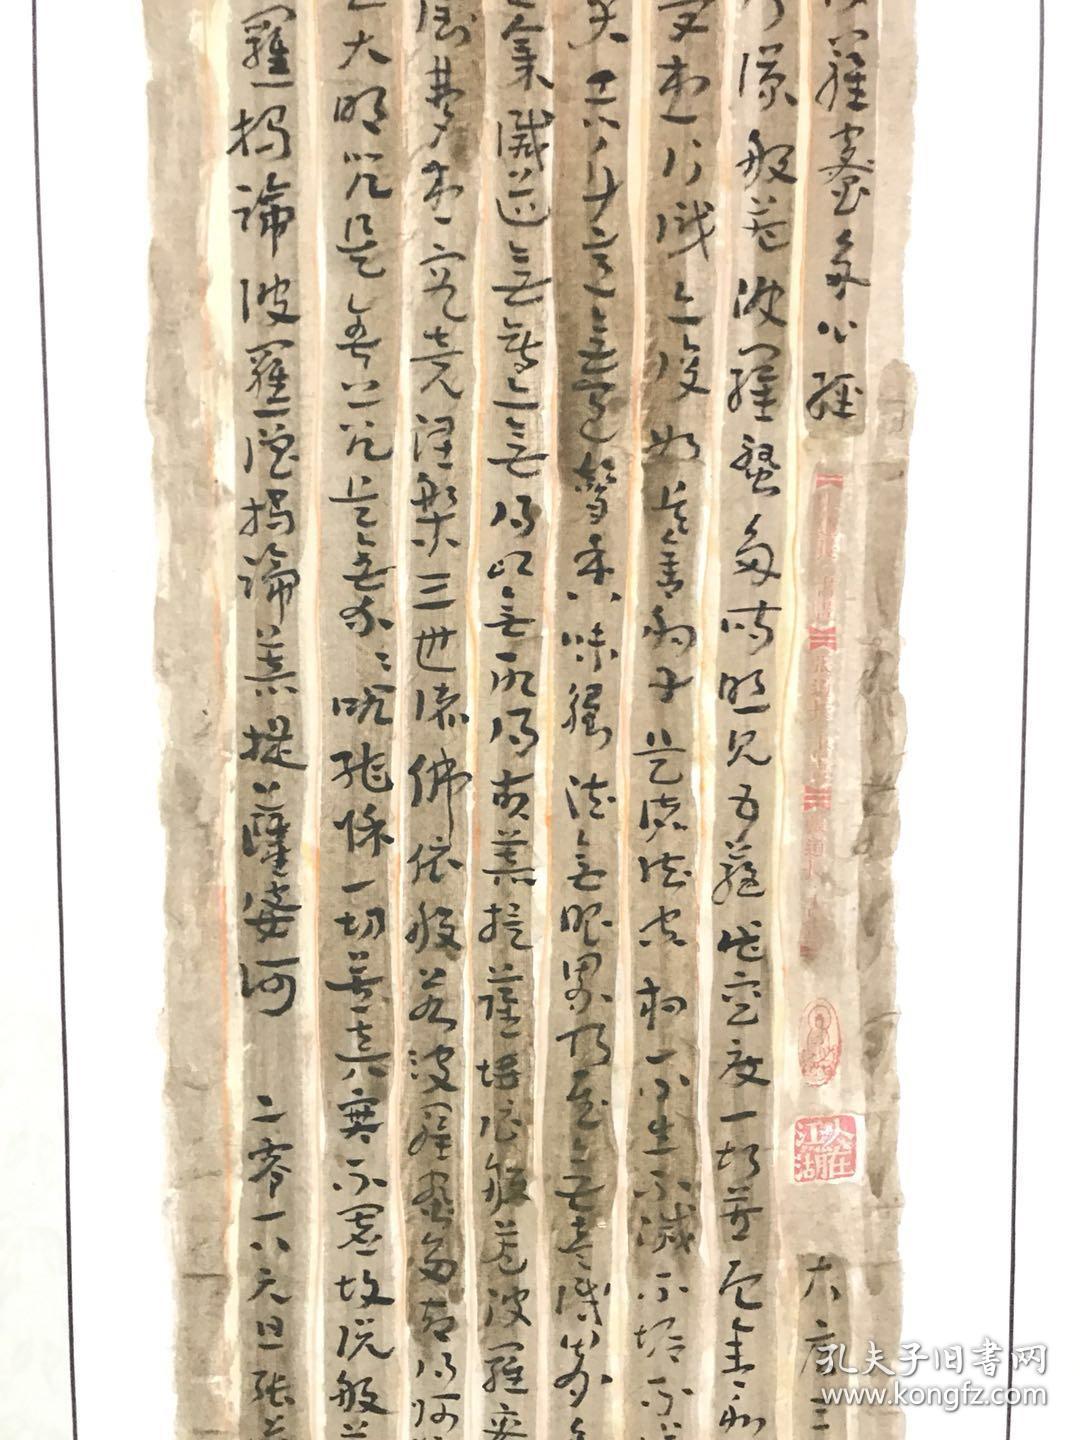 羅蜜多心經 大唐三
行深般若波羅蜜多時照見五蘊皆空度一切苦厄舍利
受想行識亦復如是舍利子是諸法空相不生不滅不垢不
無色聲香味觸法無眼界乃至無意識界
集滅道無智亦無得以無所得故菩提薩埵依般若波羅蜜
夢想究竟涅槃三世諸佛依般若波羅蜜多故得阿
大明咒是無上咒是無等等咒能除一切苦真實不虛故說般若
羅揭諦波羅僧揭諦菩提薩婆訶 二零一八元旦張
人在江湖
孔夫子旧书网
www.kongfz.com